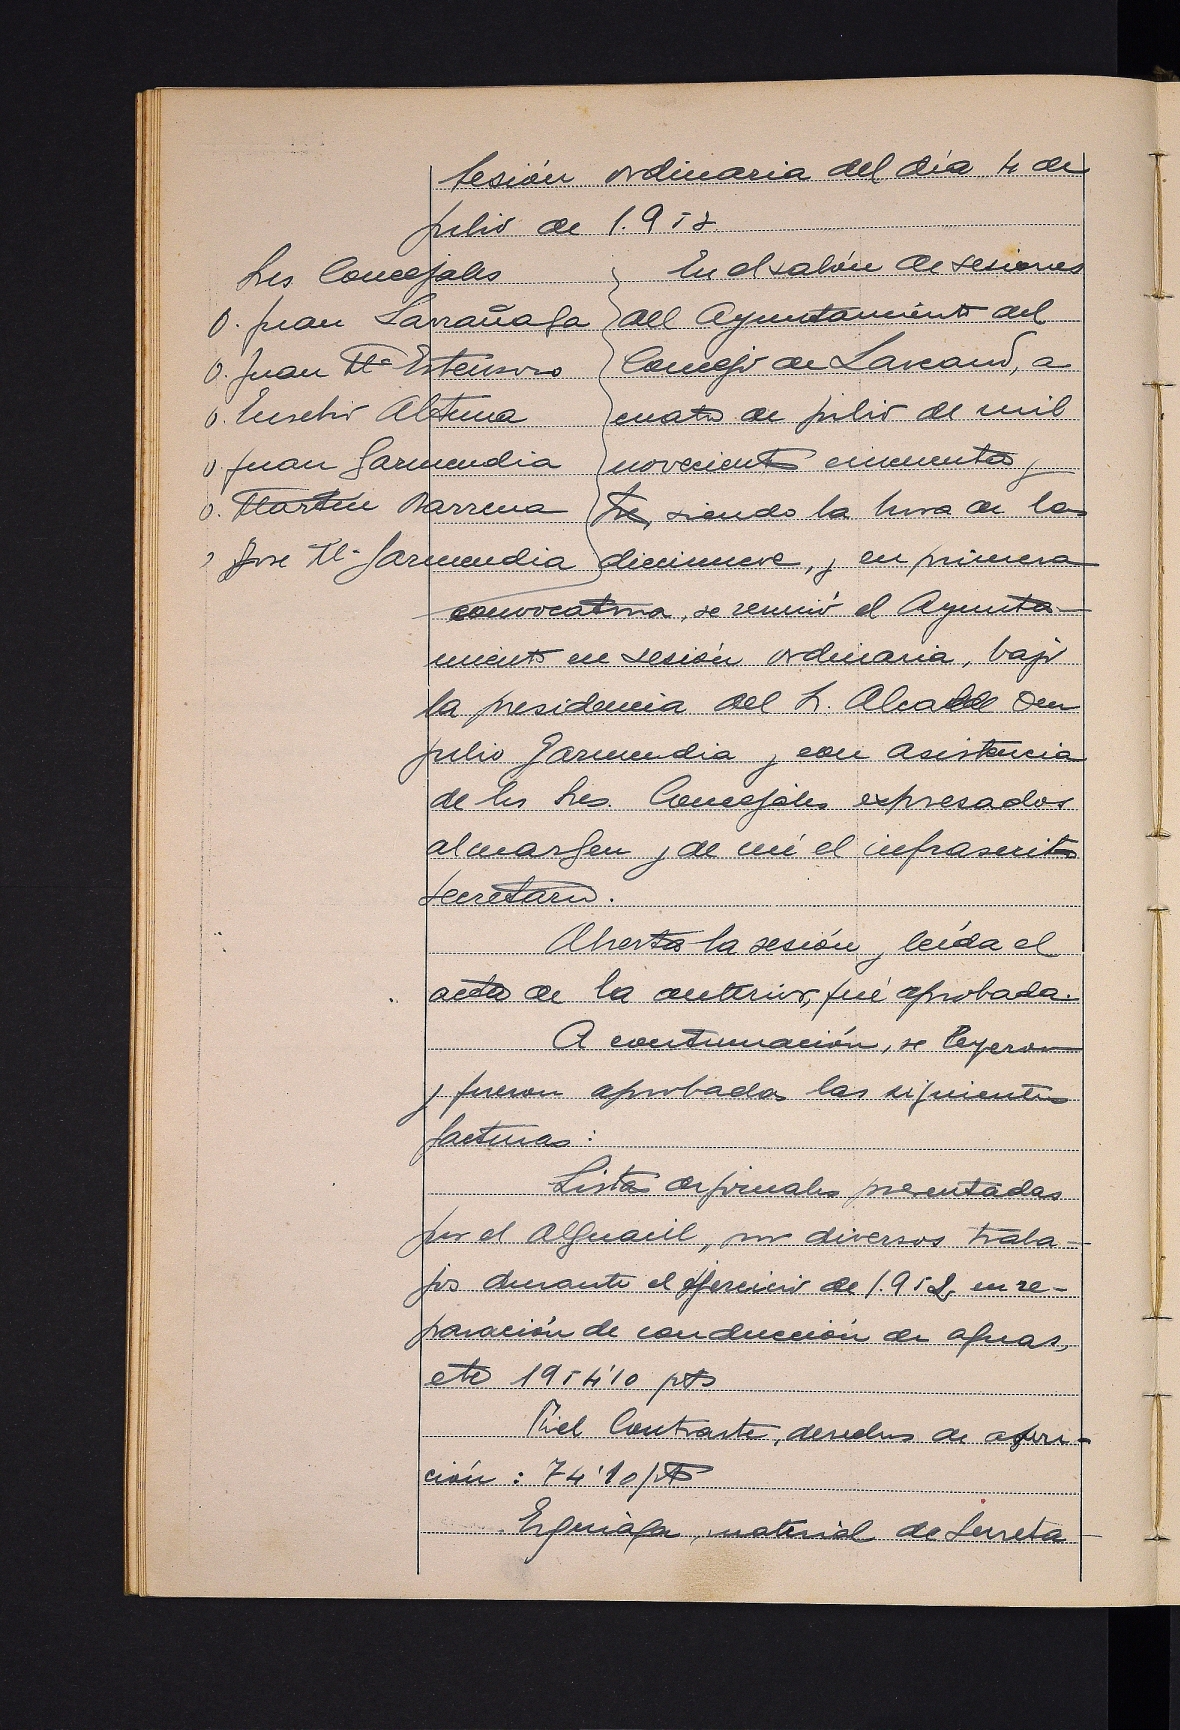 Sesión ordinaria del día 4 de
julio de 1.953
Sres Concejales
D. Juan Larrañaga
D. Juan Mª Estensoro
D. Eusebio Altuna
D. Juan Garmendia
D. Martín Barrena
D. José Mª Garmendia
En el salón de sesiones
del Ayuntamiento del
Concejo de Lazcano, a
cuatro de julio de mil
novecientos cincuenta y
tres, siendo la hora de las
diecinueve, y en primera
convocatoria, se reunió el Ayunta-
miento en sesión ordinaria, bajo
la presidencia del Sr. Alcalde Don
Julio Garmendia y con asistencia
de los Sres. Concejales expresados
al margen y de mí el infrascrito
secretario.
Abierta la sesión y leída el
acta de la anterior, fué aprobada.
A continuación, se leyeron
y fueron aprobadas las siguientes
facturas:
Listas de jornales presentadas
por el Alguacil, por diversos traba-
jos durante el ejercicio de 1.952, en re-
paración de conducción de aguas,
etc 1954'10 pts
Fiel Contraste, derechos de aferi-
ción: 74'10 pts
Eguiafa, material de Secreta-